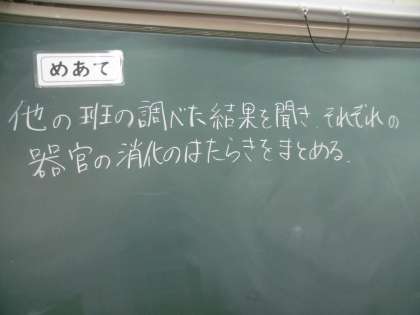 めあて
他の班の調べた結果を聞き、それぞれの
器官の消化のはたらきをまとめる。